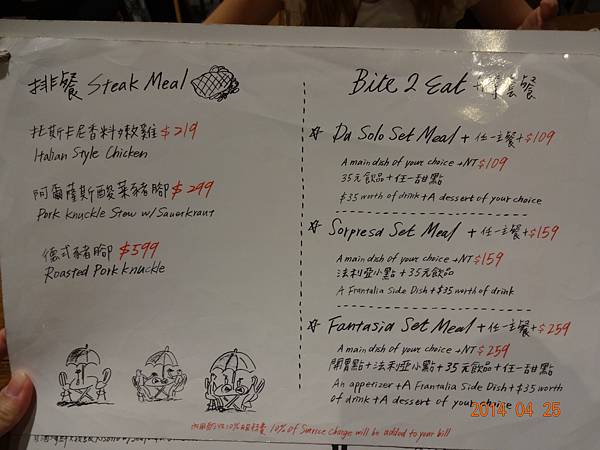 排餐 Steak Meal
托斯卡尼香料嫩雞 $219
Italian Style Chicken
阿爾薩斯酸菜豬腳 $299
Pork Knuckle Stew w/Sauerkraut
德式豬腳 $599
Roasted Pork Knuckle
Bite 2 Eat 套餐
☆ Da Solo Set Meal + 任一主餐 + $109
A main dish of your choice +NT$109
35元飲品+任一甜點
$35 worth of drink + A dessert of your choice
☆ Sorpresa Set Meal + 任一主餐 + $159
A main dish of your choice +NT$159
法利亞小點 + 35元飲品
A Frantalia Side Dish + $35 worth of drink
☆ Fantasia Set Meal + 任一主餐 + $259
A main dish of your choice +NT$259
開胃點+法利亞小點+35元飲品+任一甜點
An appetizer + A Frantalia Side Dish + $35 worth
of drink + A dessert of your choice
10% of Service Charge will be added to your bill
2014 04 25